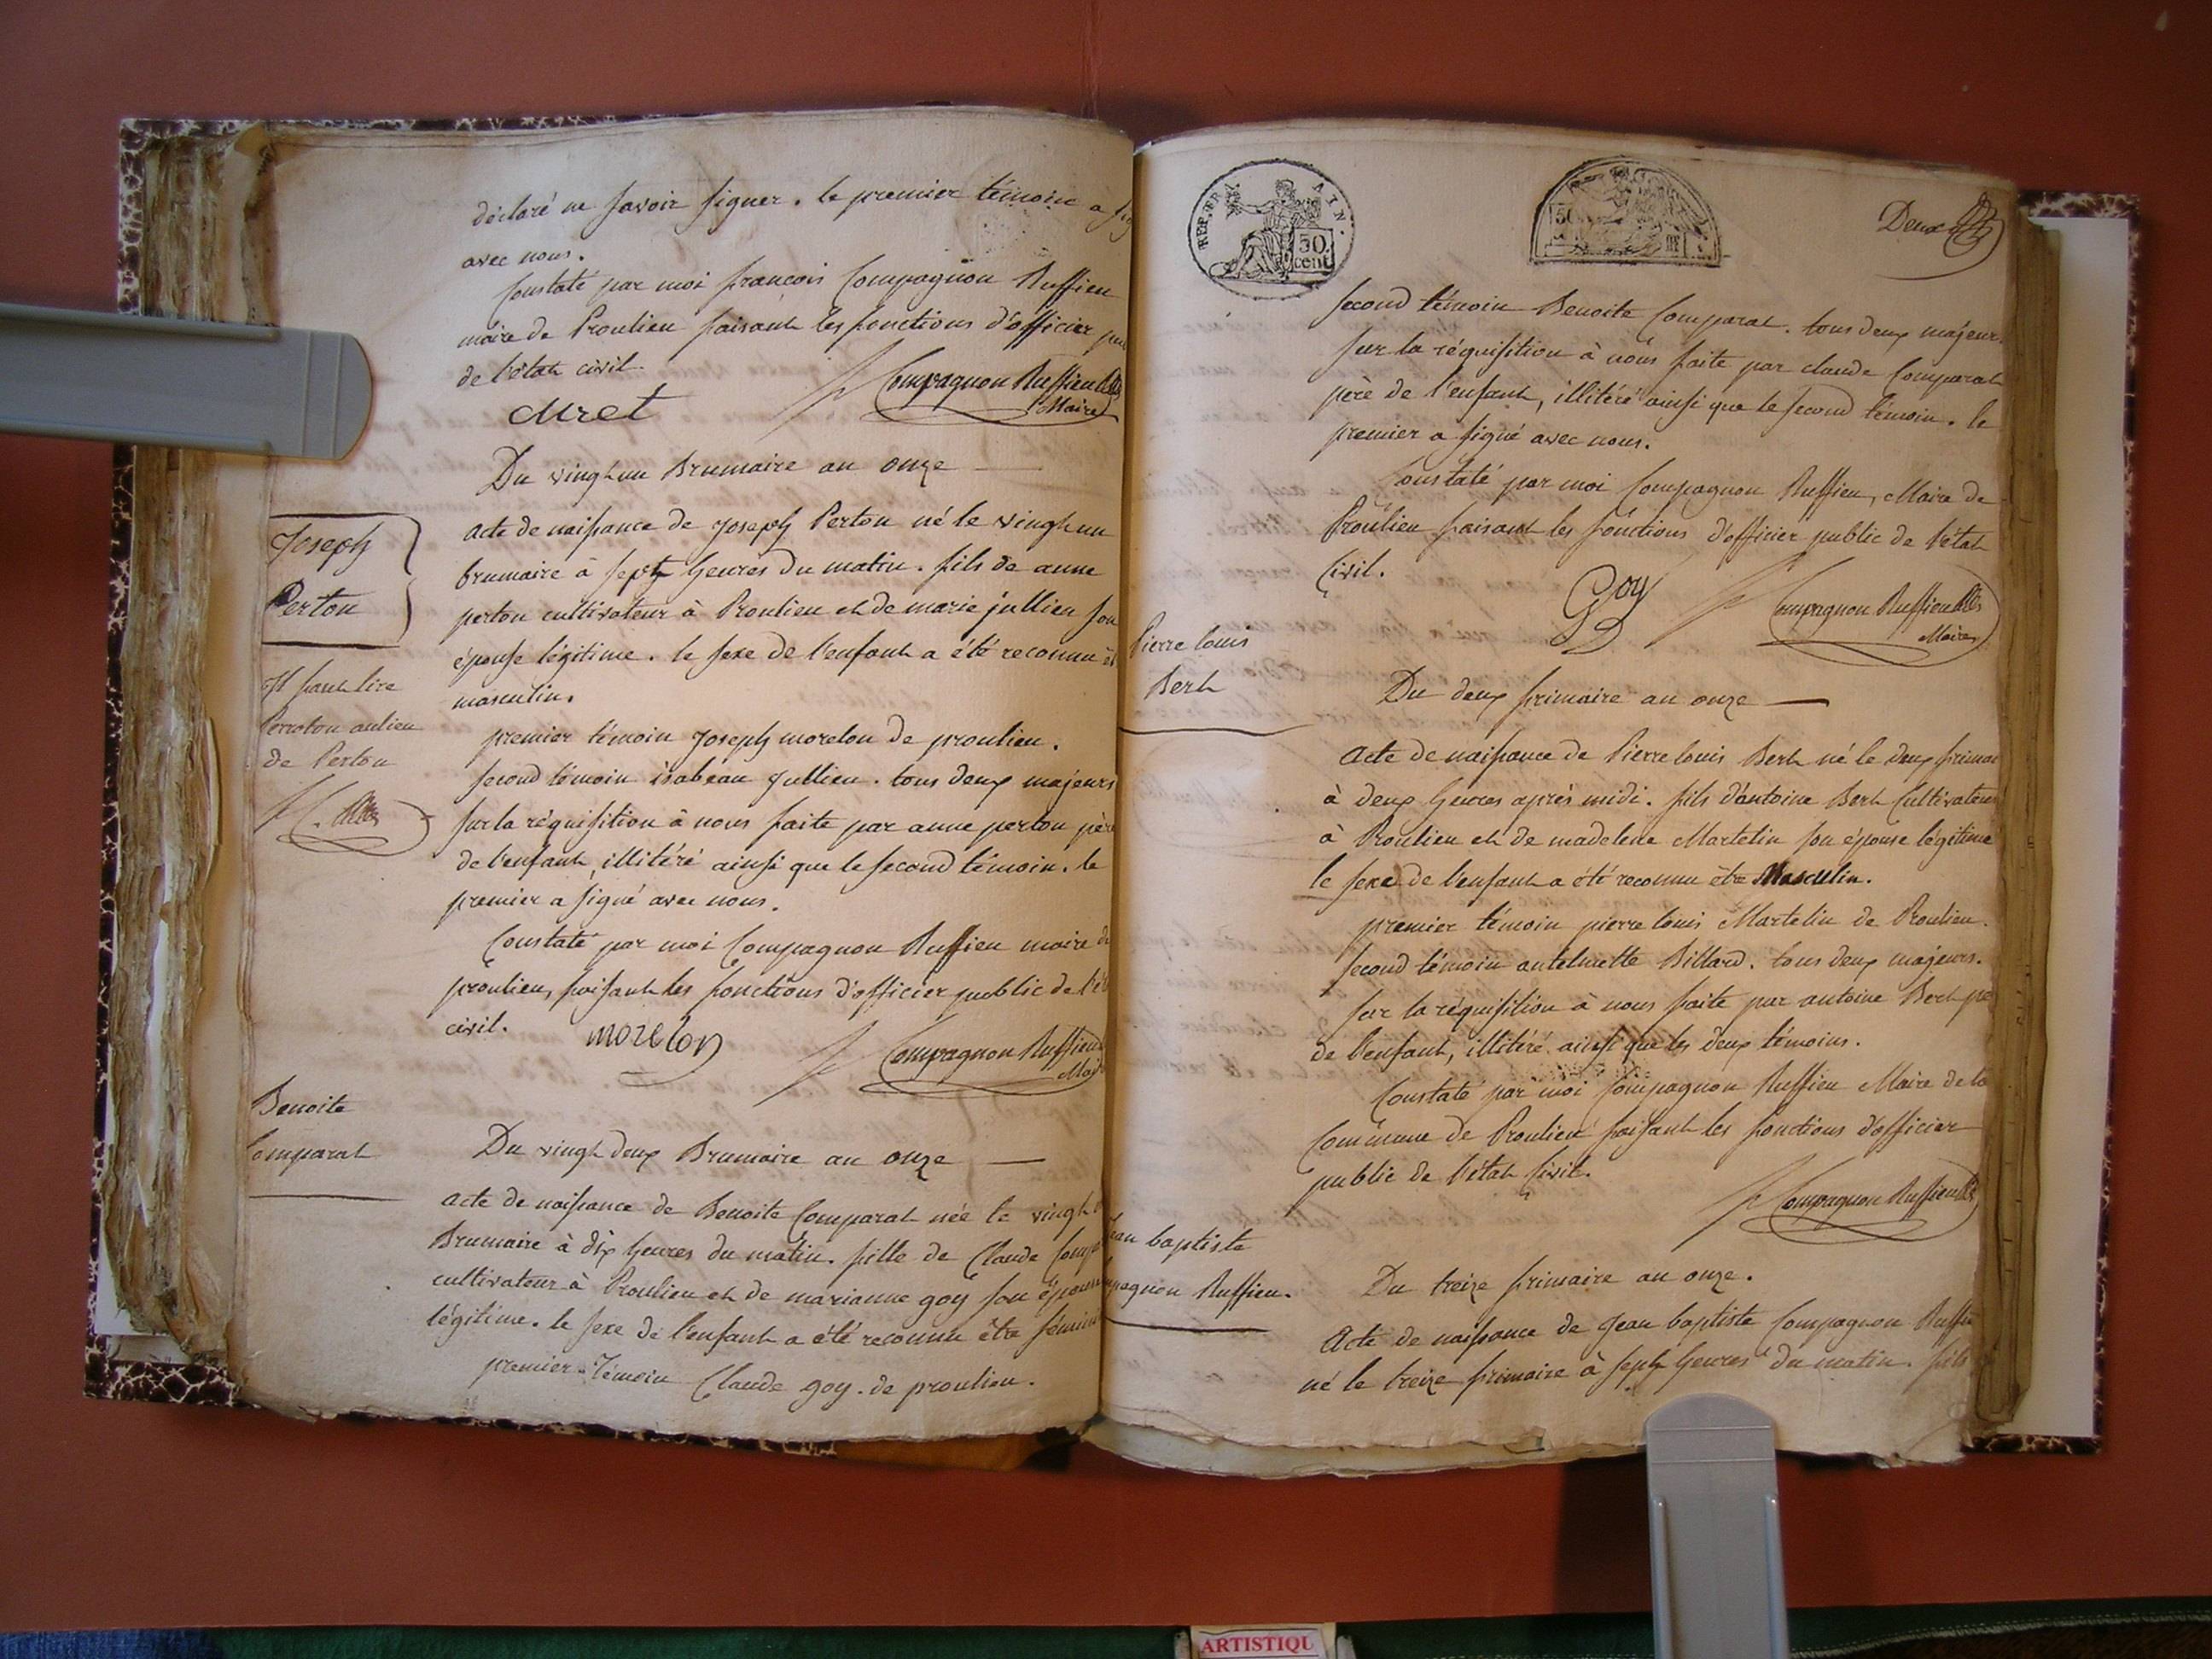 déclaré ne savoir signer. le premier témoin a sig
avec nous.
Constaté par moi françois Compagnon Ruffieu
maire de Proulieu faisant les fonctions d'officier pu
de l'état civil.
Compagnon Ruffieu
Maire
Muret
Du vingt un Brumaire an onze
Joseph
Perton
acte de naissance de Joseph Perton né le vingt un
brumaire à sept heures du matin. fils de anne
perton cultivateur à Proulieu et de marie jullien son
épouse légitime. le sexe de l'enfant a été reconnu êt
masculin.
Il faut lire
Perroton au lieu
de Perton
premier témoin Joseph morelon de proulieu.
second témoin isabeau Jullien. tous deux majeurs
sur la réquisition à nous faite par anne perton père
de l'enfant, illitéré ainsi que le second témoin. le
premier a signé avec nous.
Constaté par moi Compagnon Ruffieu maire de
proulieu, faisant les fonctions d'officier public de l'ét
civil.
morelon
Compagnon Ruffieu
Mair
Benoite
Comparat
Du vingt deux Brumaire an onze
acte de naissance de Benoite Comparat née le vingt
Brumaire à dix heures du matin. fille de Claude Comp
cultivateur à Proulieu et de marianne goy son épouse
légitime. le sexe de l'enfant a été reconnu être fémini
premier Témoin Claude goy. de proulieu.
REP. FRA. AIN.
50
cent
50
Deux
second témoin Benoite Comparat. tous deux majeurs.
sur la réquisition à nous faite par claude Comparat
père de l'enfant, illitéré ainsi que le second témoin. le
premier a signé avec nous.
Constaté par moi Compagnon Ruffieu, Maire de
Proulieu faisant les fonctions d'officier public de l'état
Civil.
Goy
Compagnon Ruffieu
Maire
Pierre louis
Bert
Du deux frimaire an onze
Acte de naissance de Pierre louis Bert né le deux frimai
à deux heures après midi. fils d'antoine Bert Cultivateur
à Proulieu et de madelene Martelin son épouse légitime
le sexe de l'enfant a été reconnu être Masculin.
premier témoin pierre louis Martelin de Proulieu.
second témoin antelmette Billard. tous deux majeurs.
sur la réquisition à nous faite par antoine Bert pe
de l'enfant, illitéré ainsi que les deux témoins.
Constaté par moi Compagnon Ruffieu Maire de la
Commune de Proulieu faisant les fonctions d'officier
public de l'état Civil.
Compagnon Ruffieu
Jean baptiste
pagnon Ruffieu.
Du treize frimaire an onze.
Acte de naissance de Jean baptiste Compagnon Ruffie
né le treize frimaire à sept heures du matin. fils
ARTISTIQU